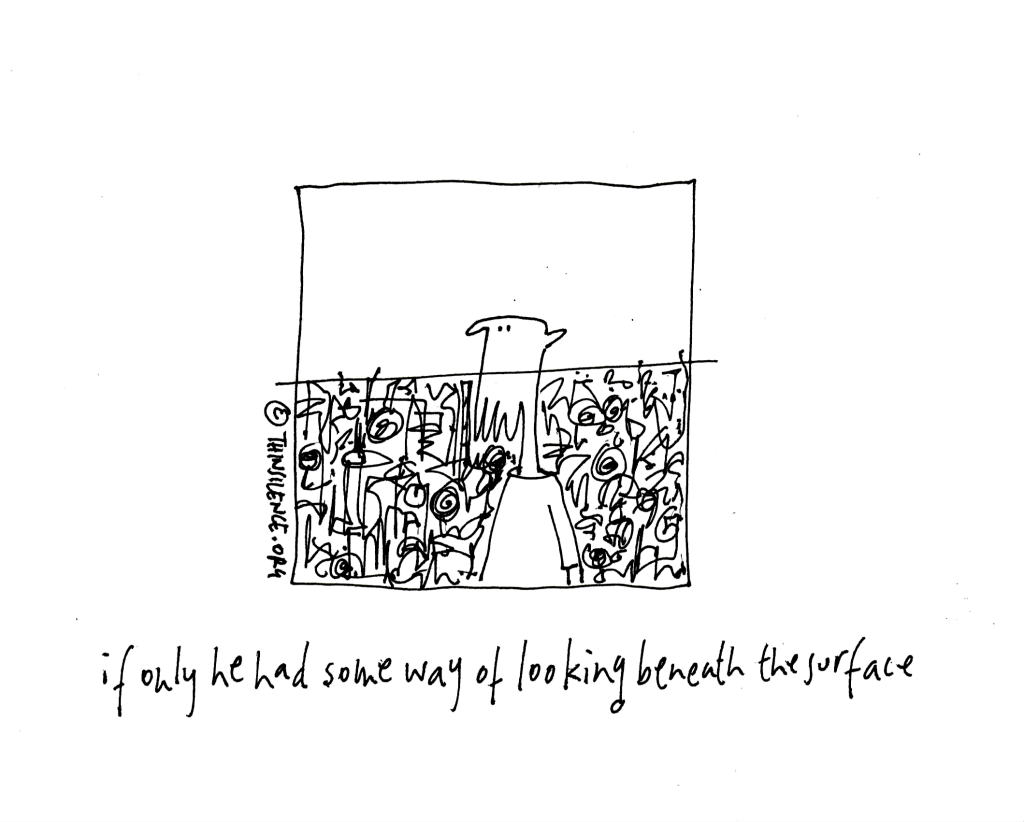 © THINSILENCE.ORG
if only he had some way of looking beneath the surface